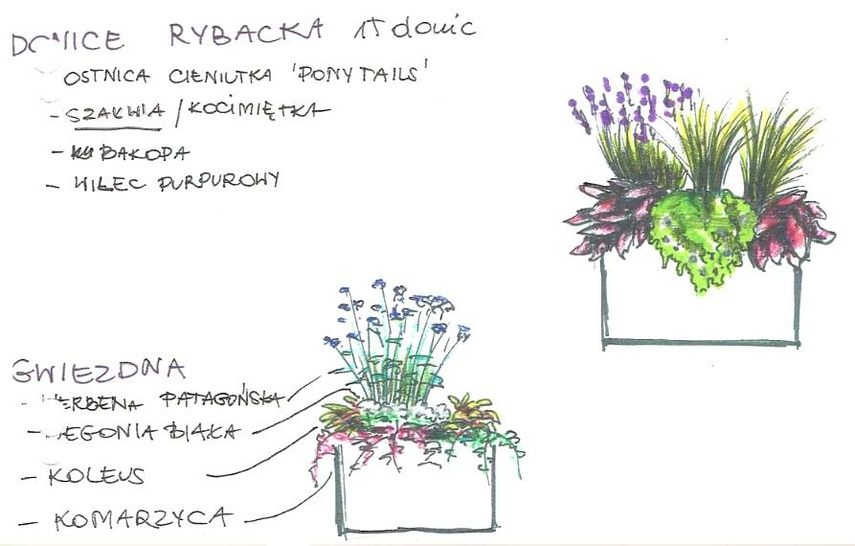 DONICE RYBACKA 15 donic
OSTNICA CIENIUTKA 'PONYTAILS'
- SZAŁWIA / KOCIMIĘTKA
- BAKOPA
- WILEC PURPUROWY
GWIEZDNA
- WERBENA PATAGOŃSKA
- BEGONIA BIAŁA
- KOLEUS
- KOMARZYCA